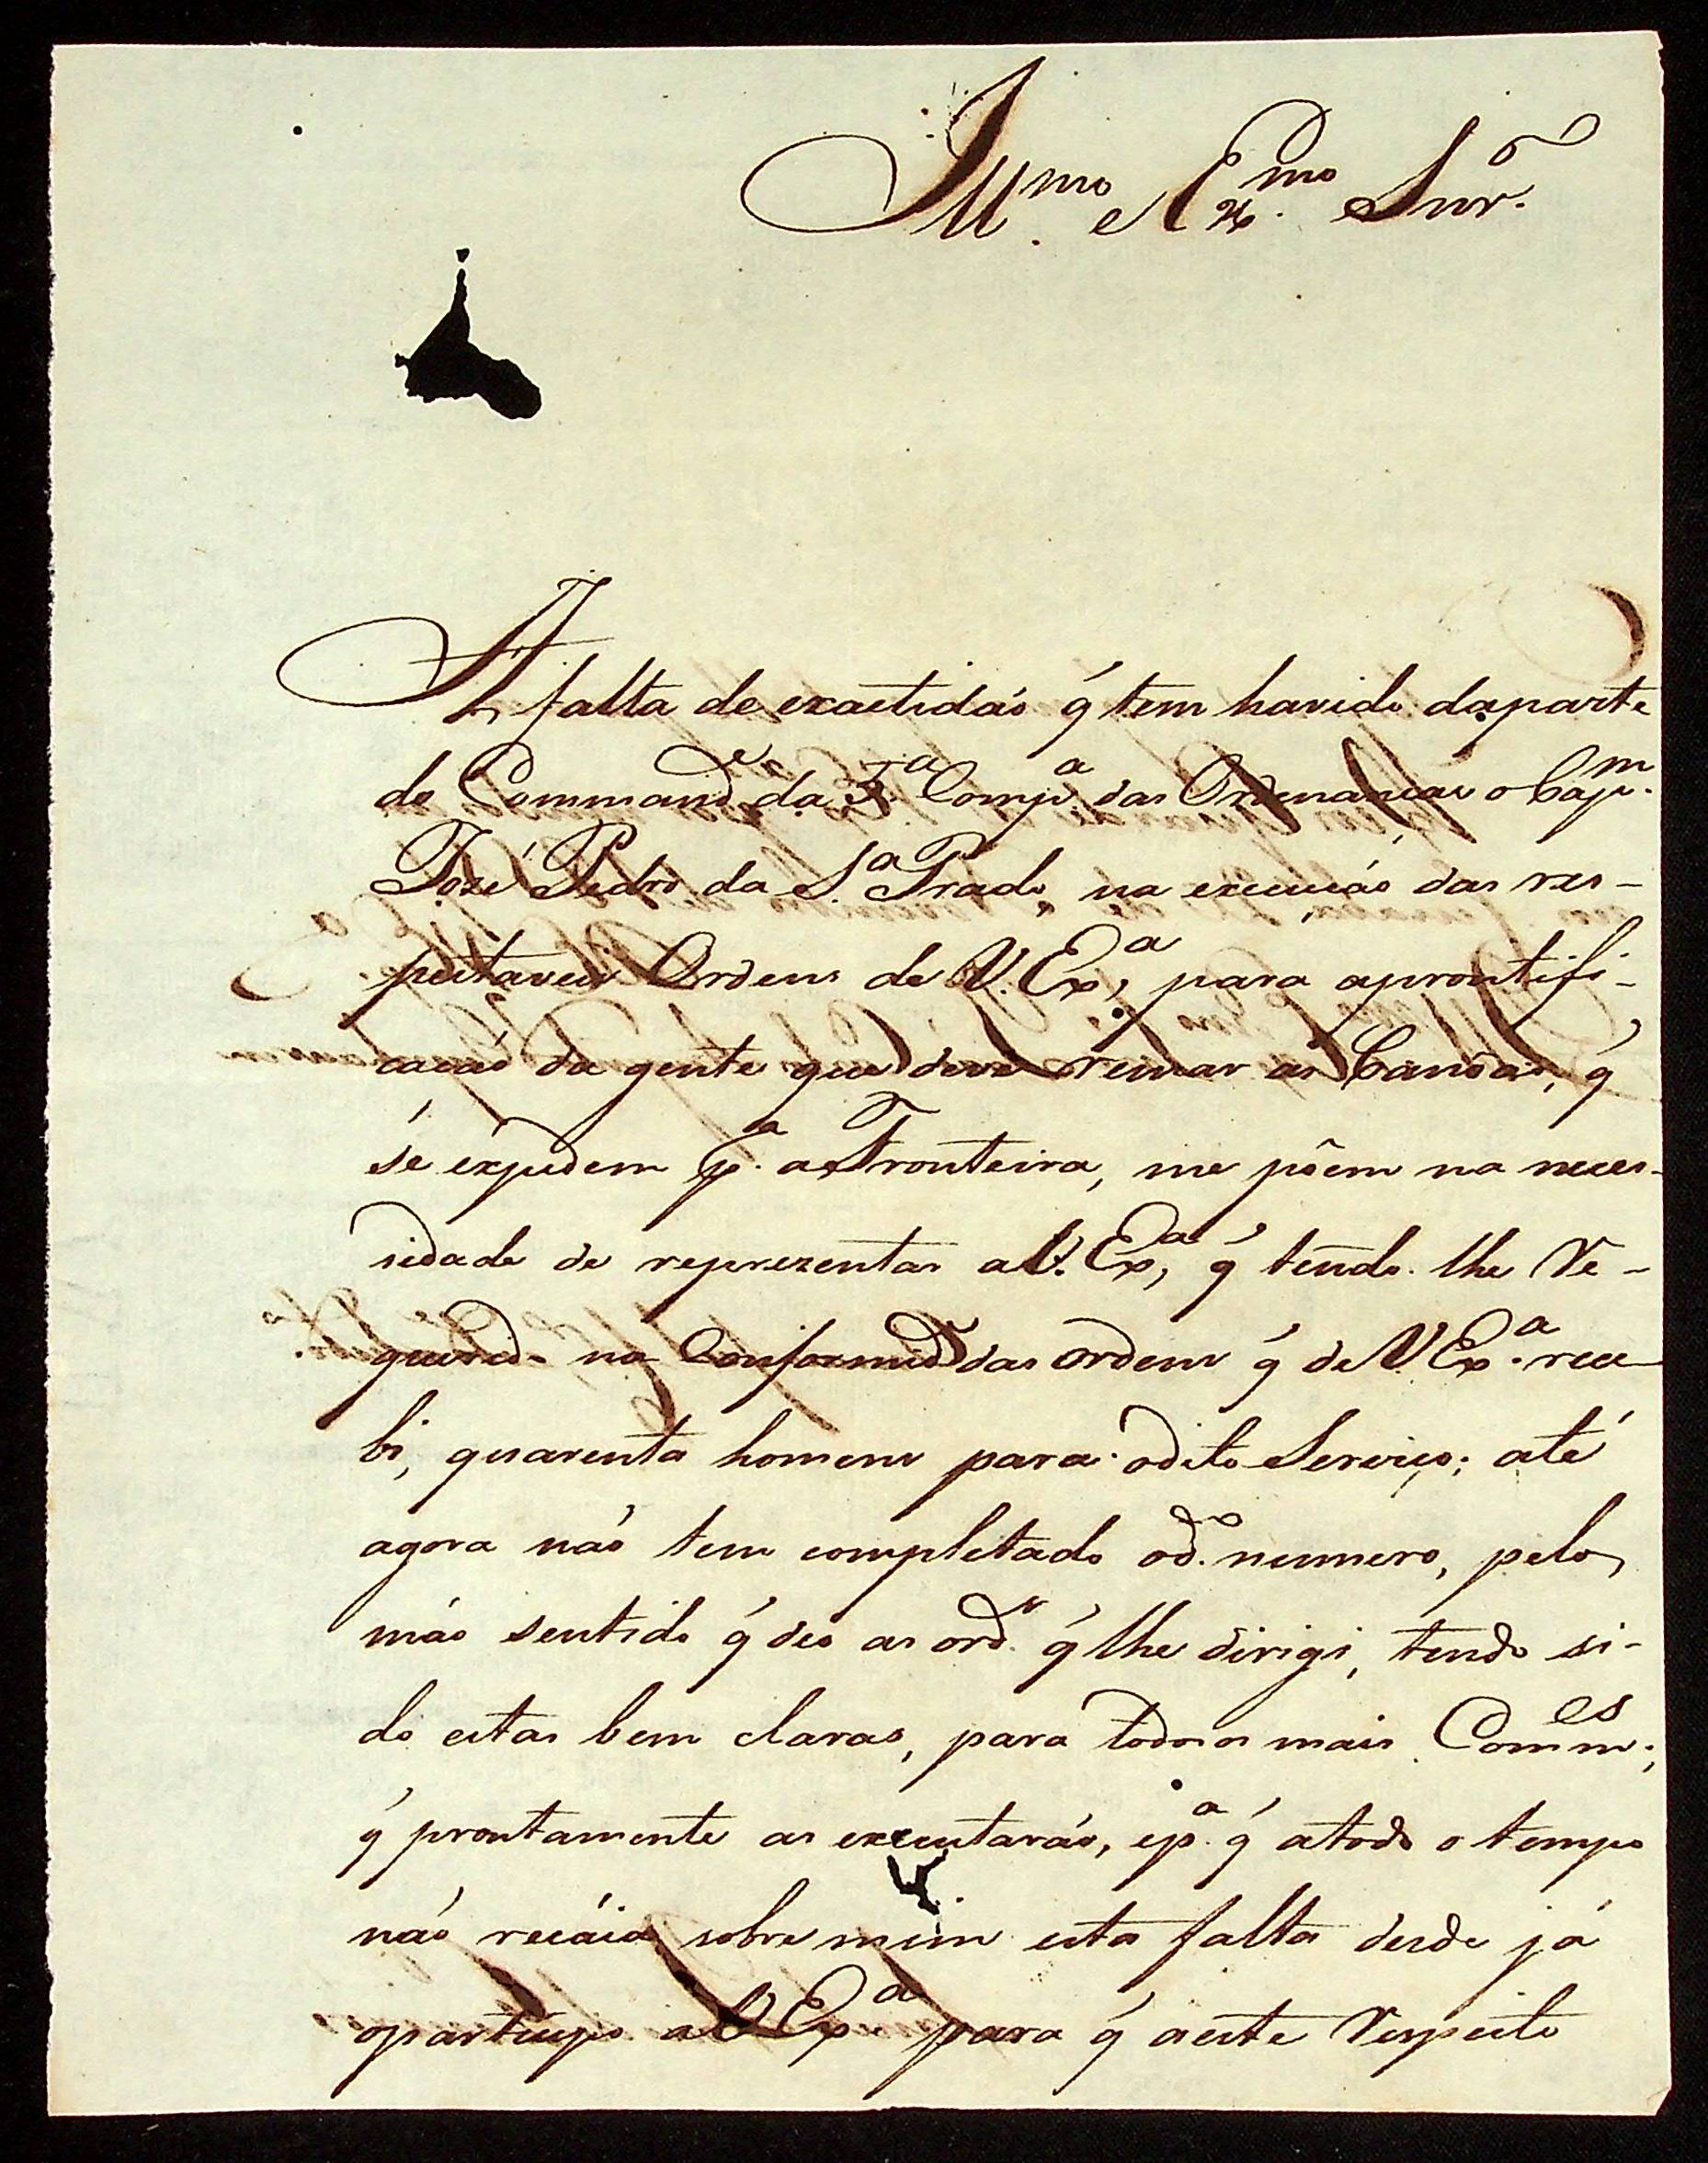 Ill.mo e Ex.mo Snr.
A falta de exactidaõ q́ tem havido da parte
do Command.e da Comp.a das Ordenanças o Cap.m
Jozé Pedro da S.a Prado, na execuçaõ das res-
peitaveis Ordens de V. Ex.a, para apromtifi-
caçaõ da gente que deve remar as Canôas, q́
se expedem p.a a Fronteira, me põem na neces-
sidade de reprezentar a V. Ex.a, q́ tendo lhe re-
querido na Conformid.e das ordens q́ de V. Ex.a rece
bi, quarenta homens para odito Serviço; até
agora naõ tem completado o d.o numero, pelo
máo sentido q́ deo as ord.s q́ lhe dirigi, tendo si-
do estas bem claras, para todos os mais Comm.es,
q́ prontamente as executaraõ, e p.a q́ atodo o tempo
naõ recáia sobre mim esta falta desde já
oparticipo a V. Ex.a para q́ aeste respeito